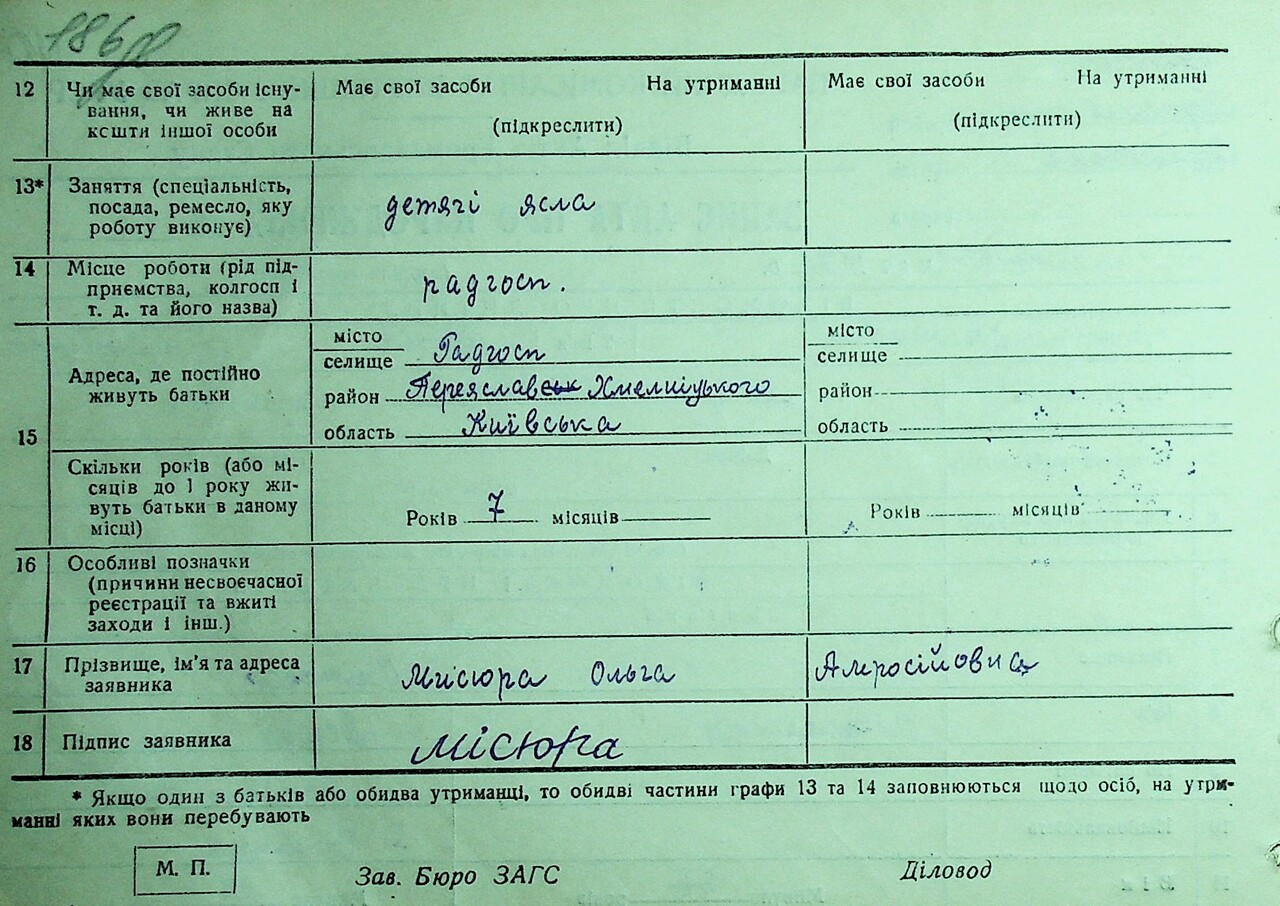 186
12 Чи має свої засоби існу- Має свої засоби На утриманні Має свої засоби На утриманні
вання, чи живе на
кошти іншої особи (підкреслити) (підкреслити)
13* Заняття (спеціальність,
посада, ремесло, яку детячі ясла
роботу виконує)
14 Місце роботи (рід під-
приємства, колгосп і радгосп.
т. д. та його назва)
15 Адреса, де постійно
живуть батьки
місто
селище Радгосп
район Переяславськ Хмелніцького
область Київська
місто
селище
район
область
Скільки років (або мі-
сяців до 1 року жи-
вуть батьки в даному
місці)
Років 7 місяців
Років місяців
16 Особливі позначки
(причини несвоєчасної
реєстрації та вжиті
заходи і інш.)
17 Прізвище, ім'я та адреса
заявника
Мисюра Ольга Амросійовна
18 Підпис заявника Місюра
* Якщо один з батьків або обидва утриманці, то обидві частини графи 13 та 14 заповнюються щодо осіб, на утри-
манні яких вони перебувають
М. П. Зав. Бюро ЗАГС Діловод